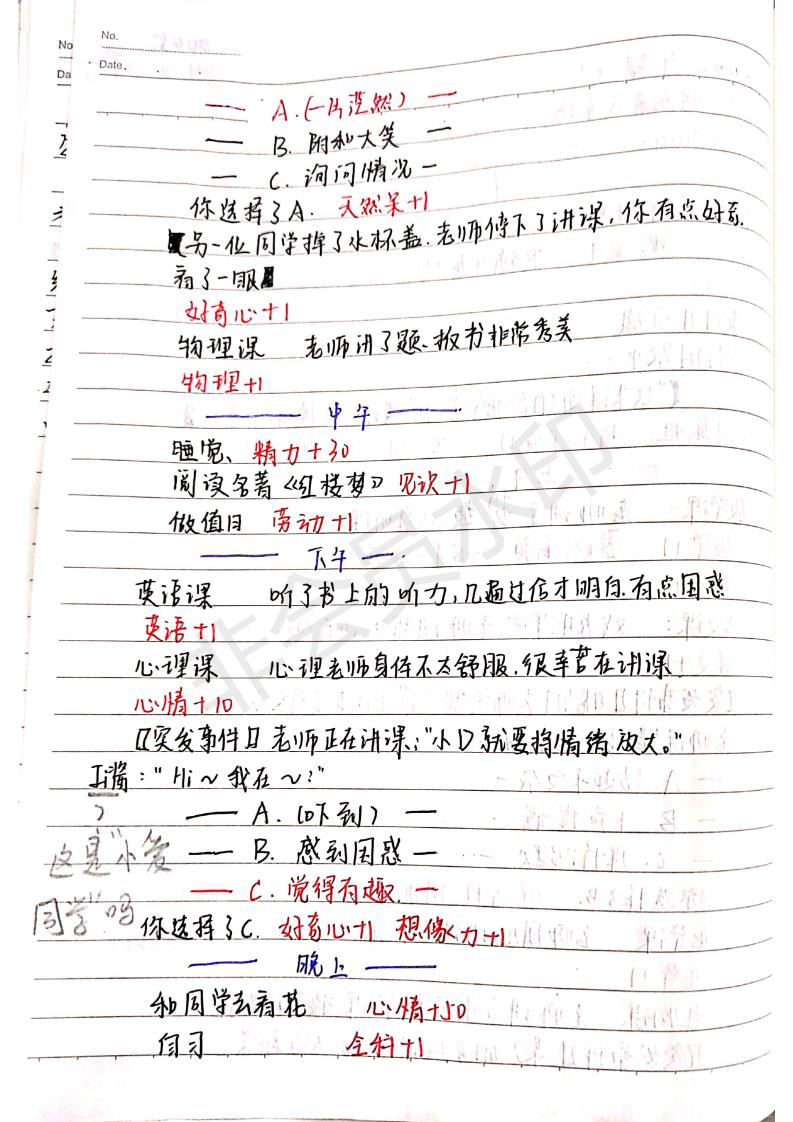 No.
Date.
No
Da
— A.(一片茫然) —
— B. 附和大笑 —
— C. 询问情况 —
你选择了A. 天然呆+1
【另一位同学掉了水杯盖.老师停下了讲课,你有点好奇.
看了一眼】
好奇心+1
物理课 老师讲了题、板书非常秀美
物理+1
—— 中午 ——
睡觉、精力+30
阅读名著《红楼梦》见识+1
做值日 劳动+1
—— 下午 ——
英语课 听了书上的听力,几遍过后才明白.有点困惑
英语+1
心理课 心理老师身体不太舒服.很辛苦在讲课
心情+10
【[突发事件]】老师正在讲课:"小D就要将情绪放大。"
Ji酱:"Hi~我在~?"
— A. (吓到) —
— B. 感到困惑 —
— C. 觉得有趣. —
这是"小爱
同学"吗
你选择了C. 好奇心+1 想像力+1
—— 晚上 ——
和同学去看花 心情+50
自习 全科+1
非会员水印